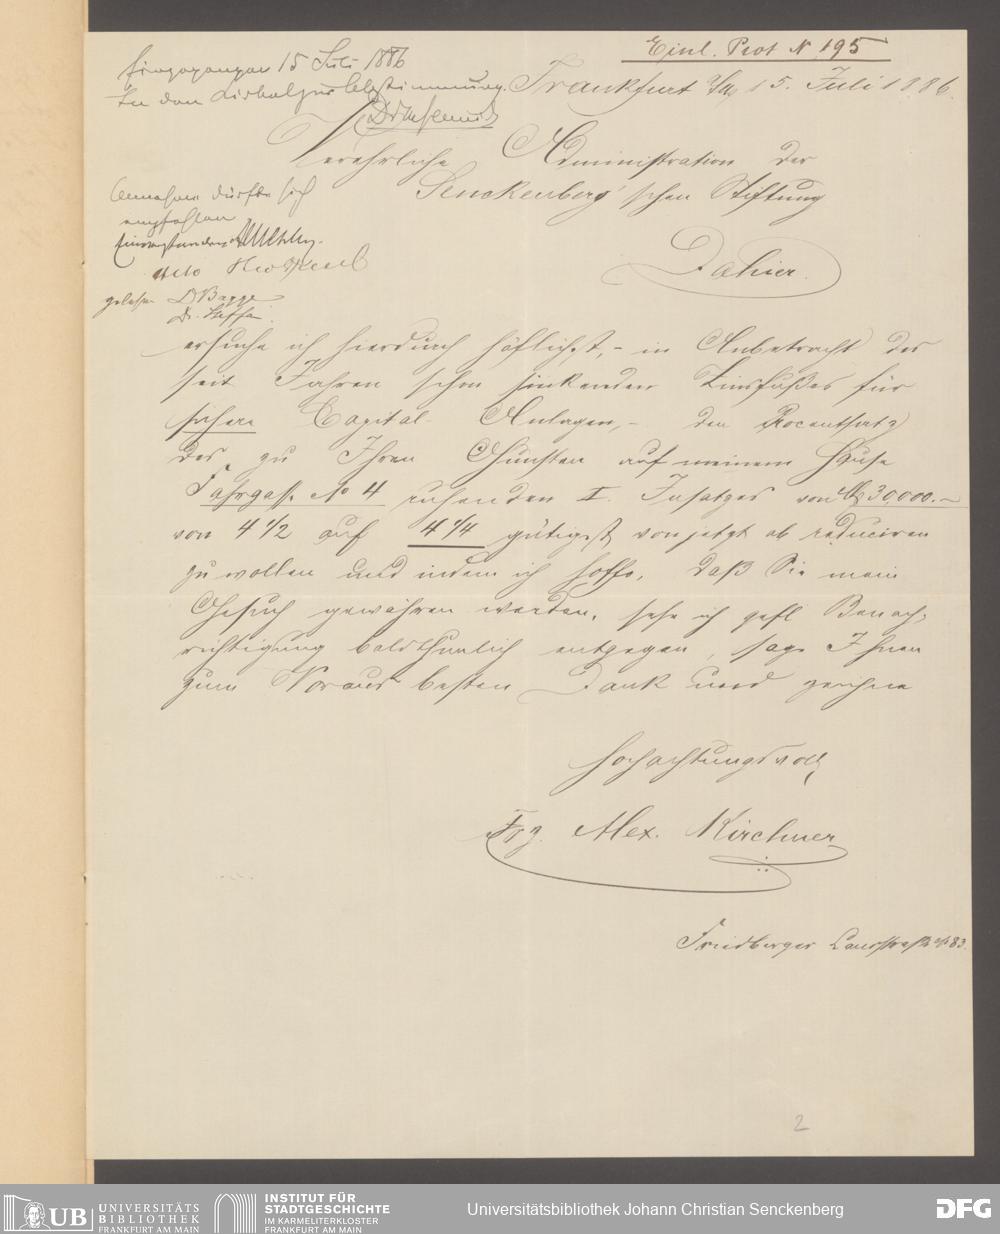 Einl. Prot N 195
Eingegangen 15 Juli 1886
In den Cirkel zur Abstimmung.
Frankfurt a/M 15. Juli 1886.
Verehrliche Administration der
Senckenberg'schen Stiftung
Dahier.
Annahme dürfte sich
empfehlen
Einverstanden
gelesen Dr Bagge
ersuche ich hierdurch höflichst, – in Anbetracht des
seit Jahren schon sinkenden Zinsfußes für
sichere Capital-Anlagen, – den Procentsatz
des zu Ihren Gunsten auf meinem Hause
Fahrgasse No 4 ruhenden I. Insatzes von M 30,000.–
von 4 1/2 auf 4 1/4 gütigst von jetzt ab reduciren
zu wollen und indem ich hoffe, daß Sie mein
Gesuch gewähren werden, sehe ich gefl Benach-
richtigung baldthunlich entgegen, sage Ihnen
zum Voraus besten Dank und zeichne
Hochachtungsvoll
Frz. Alex. Kirchner
Friedberger Landstraße No 83.
2
UB UNIVERSITÄTS
BIBLIOTHEK
FRANKFURT AM MAIN
INSTITUT FÜR
STADTGESCHICHTE
IM KARMELITERKLOSTER
FRANKFURT AM MAIN
Universitätsbibliothek Johann Christian Senckenberg
DFG